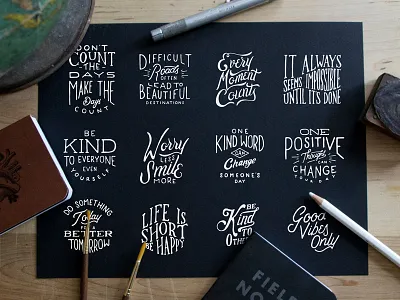 DON'T
COUNT
THE
DAYS
MAKE THE
Days
COUNT
DIFFICULT
Roads
OFTEN
LEAD TO
BEAUTIFUL
DESTINATIONS
Every
Moment
Counts
IT ALWAYS
SEEMS IMPOSSIBLE
UNTIL IT'S DONE
BE
KIND
TO EVERYONE
EVEN
YOURSELF
Worry
LESS
Smile
MORE
ONE
KIND WORD
CAN
Change
SOMEONE'S
DAY
ONE
POSITIVE
Thought
CAN
CHANGE
YOUR DAY
DO SOMETHING
Today
FOR A
BETTER
TOMORROW
LIFE IS
SHORT
BE HAPPY
BE
Kind
TO
OTHERS
Good
Vibes
Only
FIELD
NO